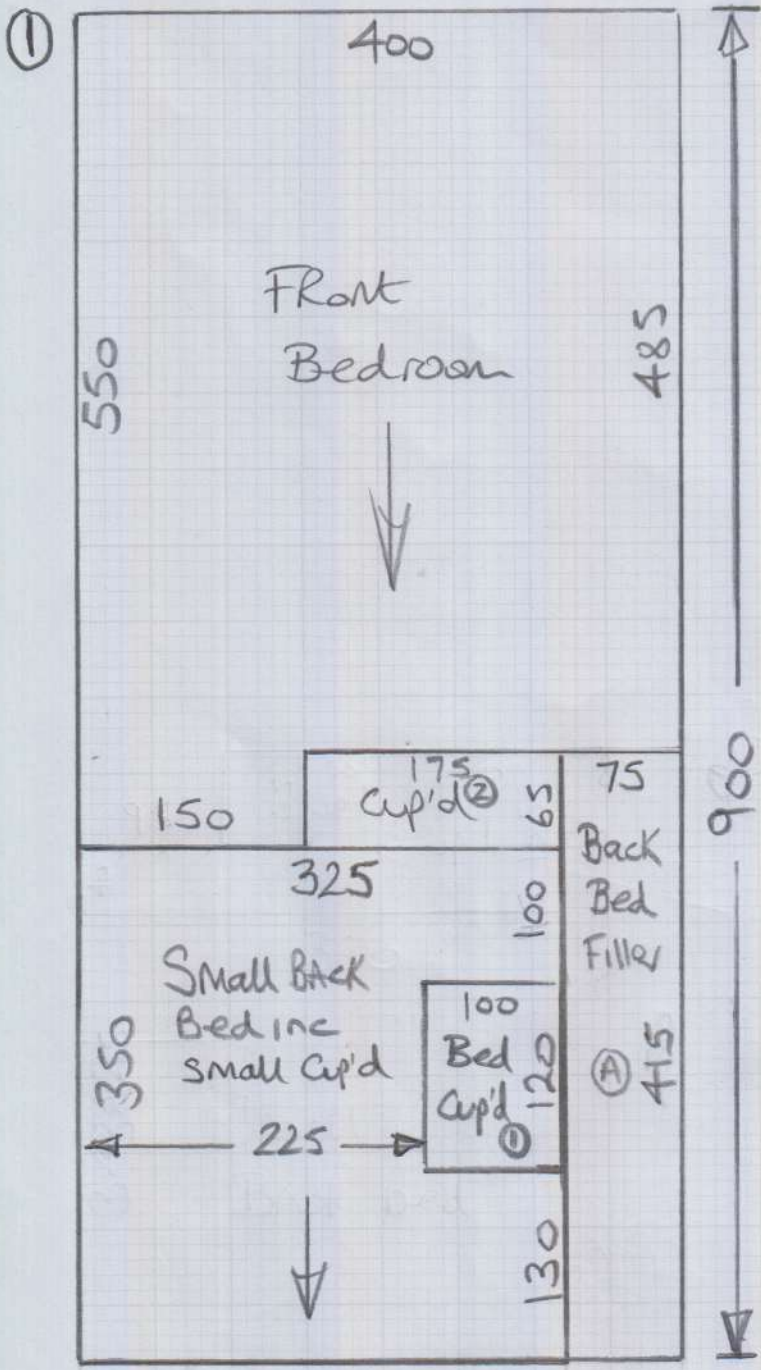 ①
400
FRont
Bedroom
550
485
900
175
Cup'd ②
65
75
150
Back
Bed
Filler
Ⓐ
415
325
100
Small BACK
Bed inc
Small Cup'd
350
225
100
Bed
Cup'd
①
120
130